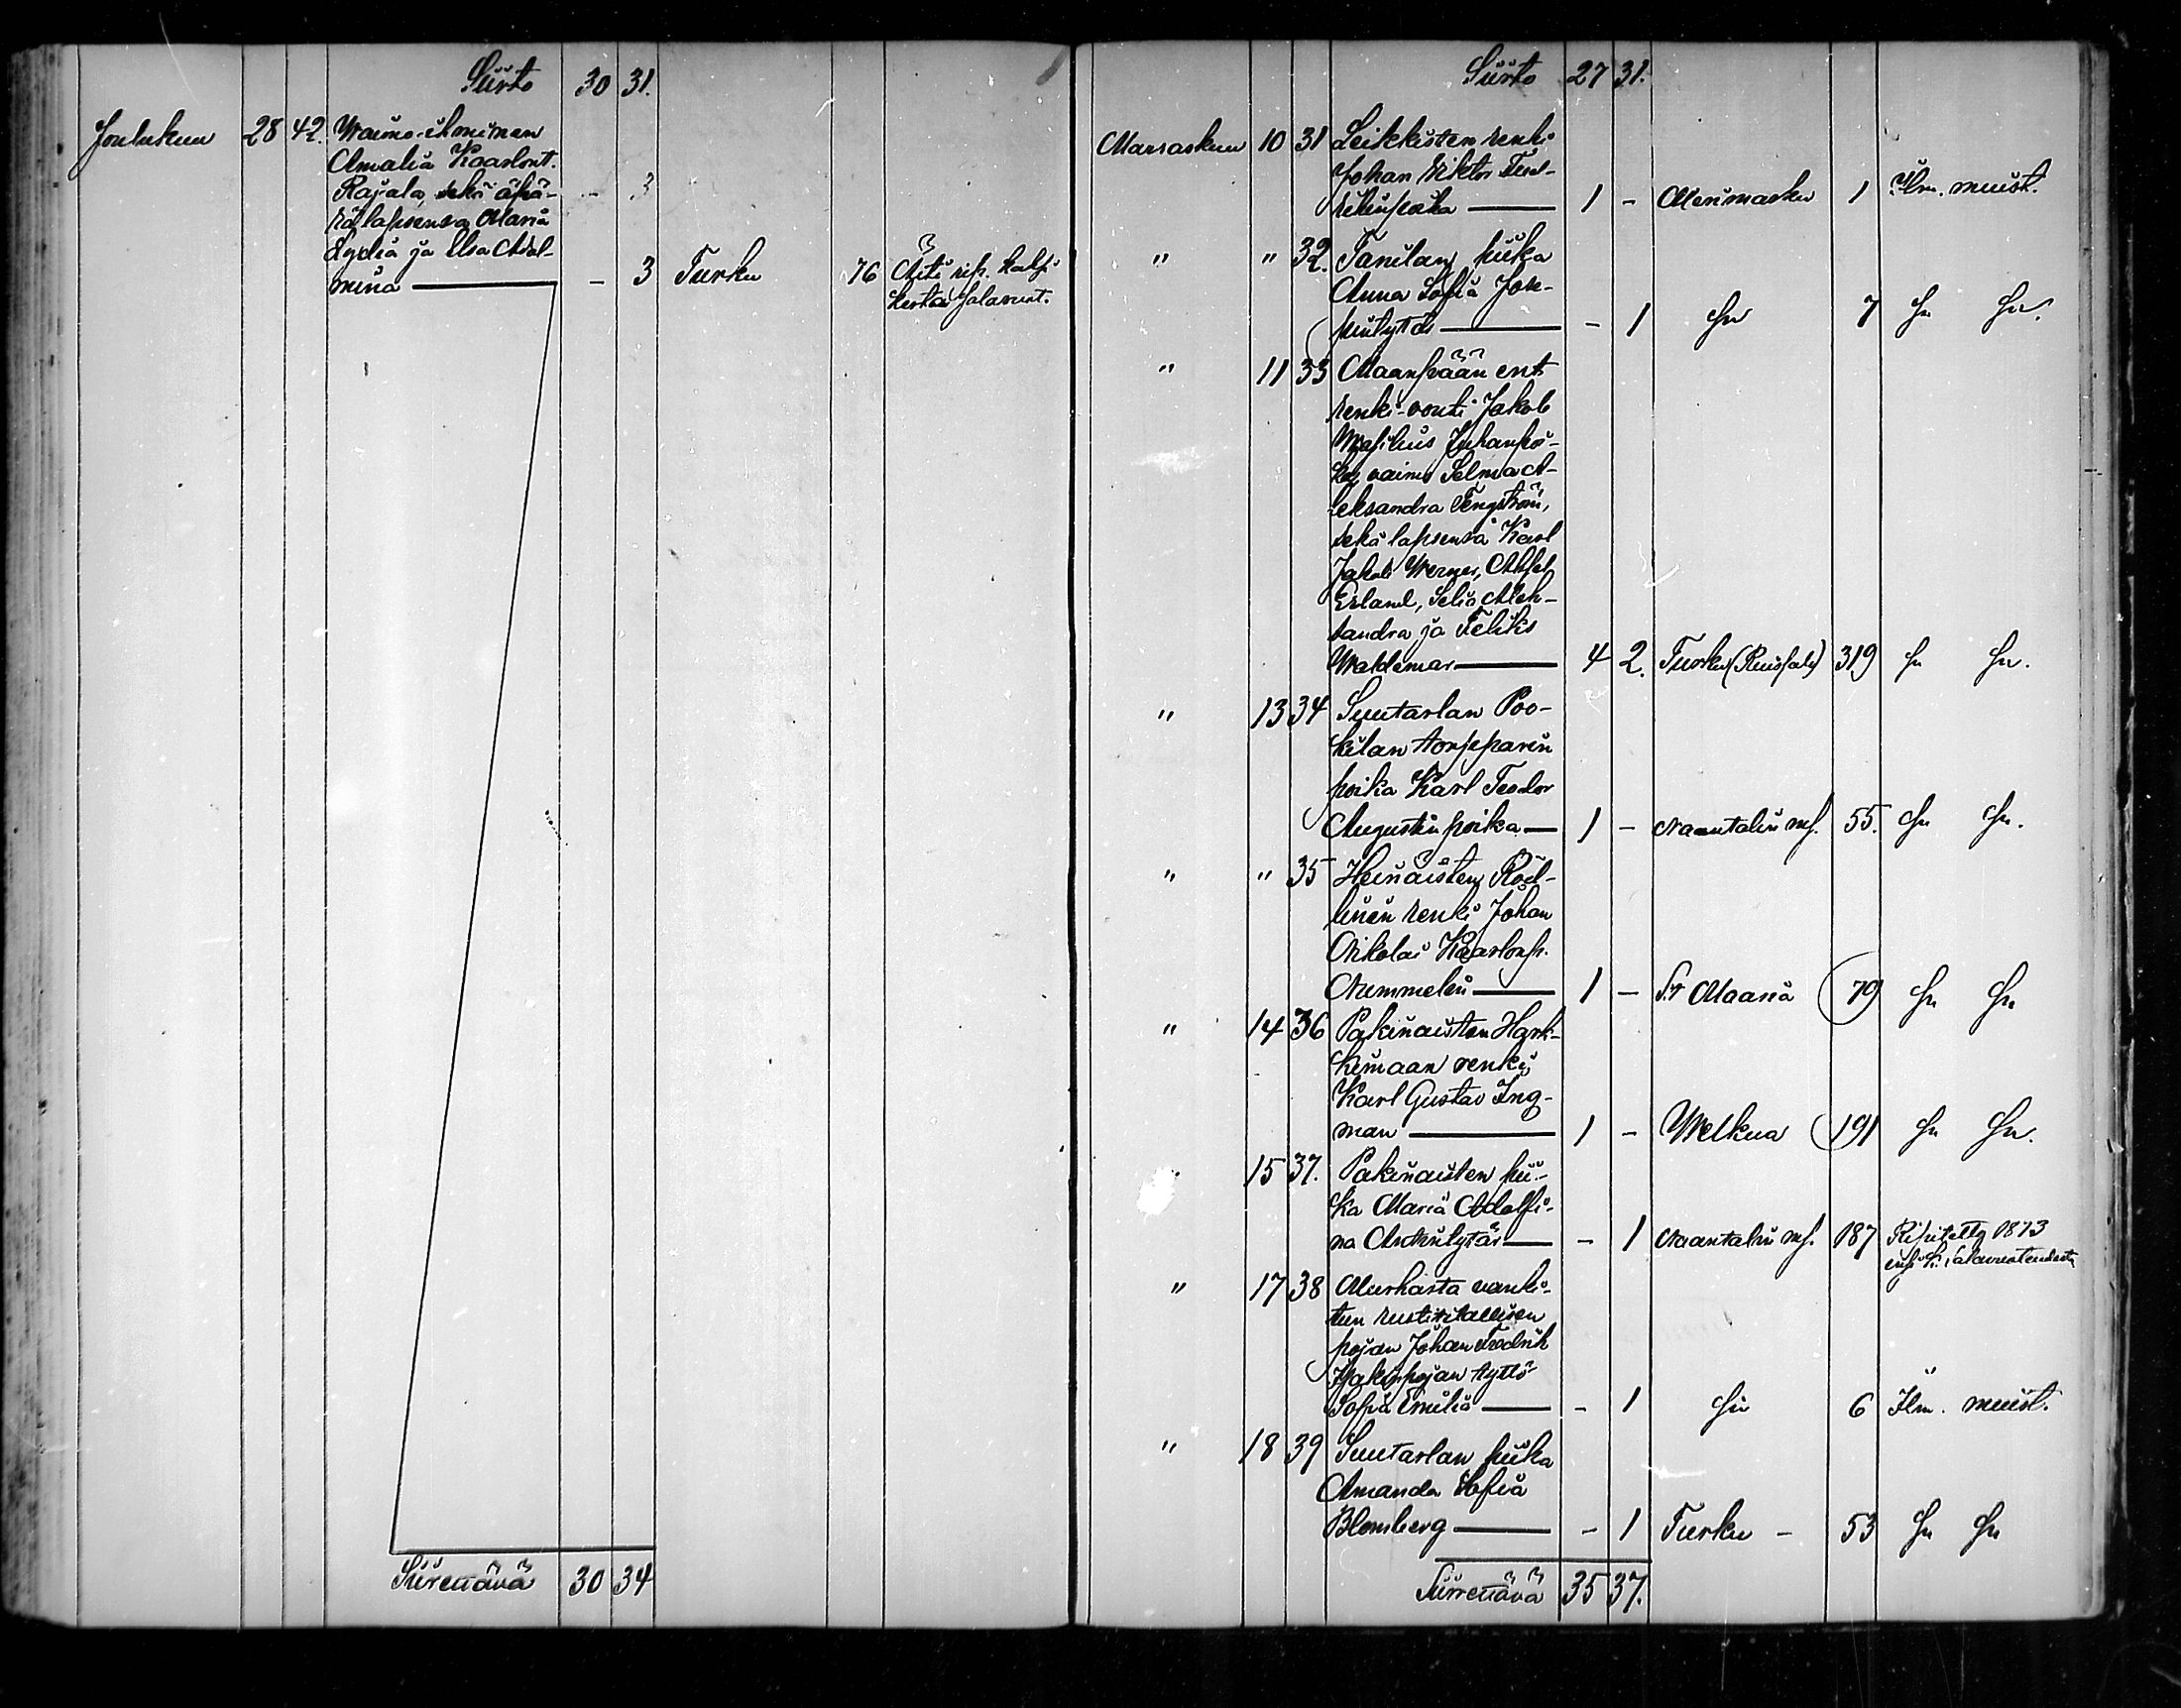 Siirto 30 31.
Joulukuu 28 42. Waimo-ihminen
Amalia Kaarlont.
Rajala, sekä äpä- - 3
rälapsensa Maria
Lydia ja Elsa Adol-
mina — - 3 Turku 76 Äiti rip. kalp.
kerta Jalavust.
Siirrettävä 30 34
Siirto 27 31.
Marraskuu 10 31 Leikkisten renki
Johan Viktor Fred-
rikinpoika — 1 - Merimasku 1 Ilm. muist.
" " 32. Tanilan piika
Anna Sofia Jose-
pintytär — - 1 Sn 7 Sn Sn.
" 11 33 Maanpään ent.
renki-vouti Jakob
Juhanpoi-
ka, vaimo Selma A-
leksandra Tengström,
sekä lapsensa Karl
Jakob Werner, Aksel
Erland, Selia Alek-
sandra ja Feliks
Waldemar — 4 2. Turku (Ruissalo) 319 Sn Sn.
" 13 34 Suutarlan Poo-
kilan torpparin
poika Karl Teodor
Augustinpoika — 1 - Naantalin ms. 55. Sn Sn.
" " 35 Heinäisten Röd-
linen renki Johan
Nikolai Kaarlonp.
Nummelin — 1 - St Maaria 79 Sn Sn
" 14 36 Pakinaisten Hark-
kimaan renki
Karl Gustav Ing-
man — 1 - Welkua 191 Sn Sn.
15 37. Pakinaisten pii-
ka Maria Adolfi-
na Antintytär — - 1 Naantalin ms. 187 Ripitetty 1873
" 17 38 Murhasta vanki-
tun rustitilallisen
pojan Johan Fredrik
Isakinpojan tyttö
Sofia Emilia — - 1 Sn 6 Ilm. muist.
" 18 39 Suutarlan piika
Amanda Sofia
Blomberg — - 1 Turku - 53 Sn Sn
Siirrettävä 35 37.